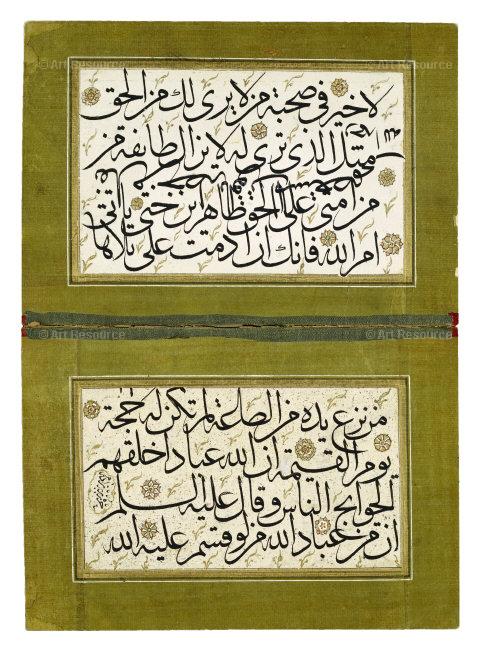 © Art Resource © Art Resource
لا خير في صحبة من لا يرى لك من الحق
مثل الذي ترى له لا يزال طايفة من
من امتي على الحق ظاهرين حتى ياتي
امر الله فانك ان ادمت على
© Art Resource © Art Resource
من نزع يده من الطاعة لم تكن له حجة
يوم القيمة ان لله عبادا خلقهم
لحوايج الناس وقال عليه السلم
ان من عباد الله من لو قسم عليه الله
© Art Resource © Art Resource